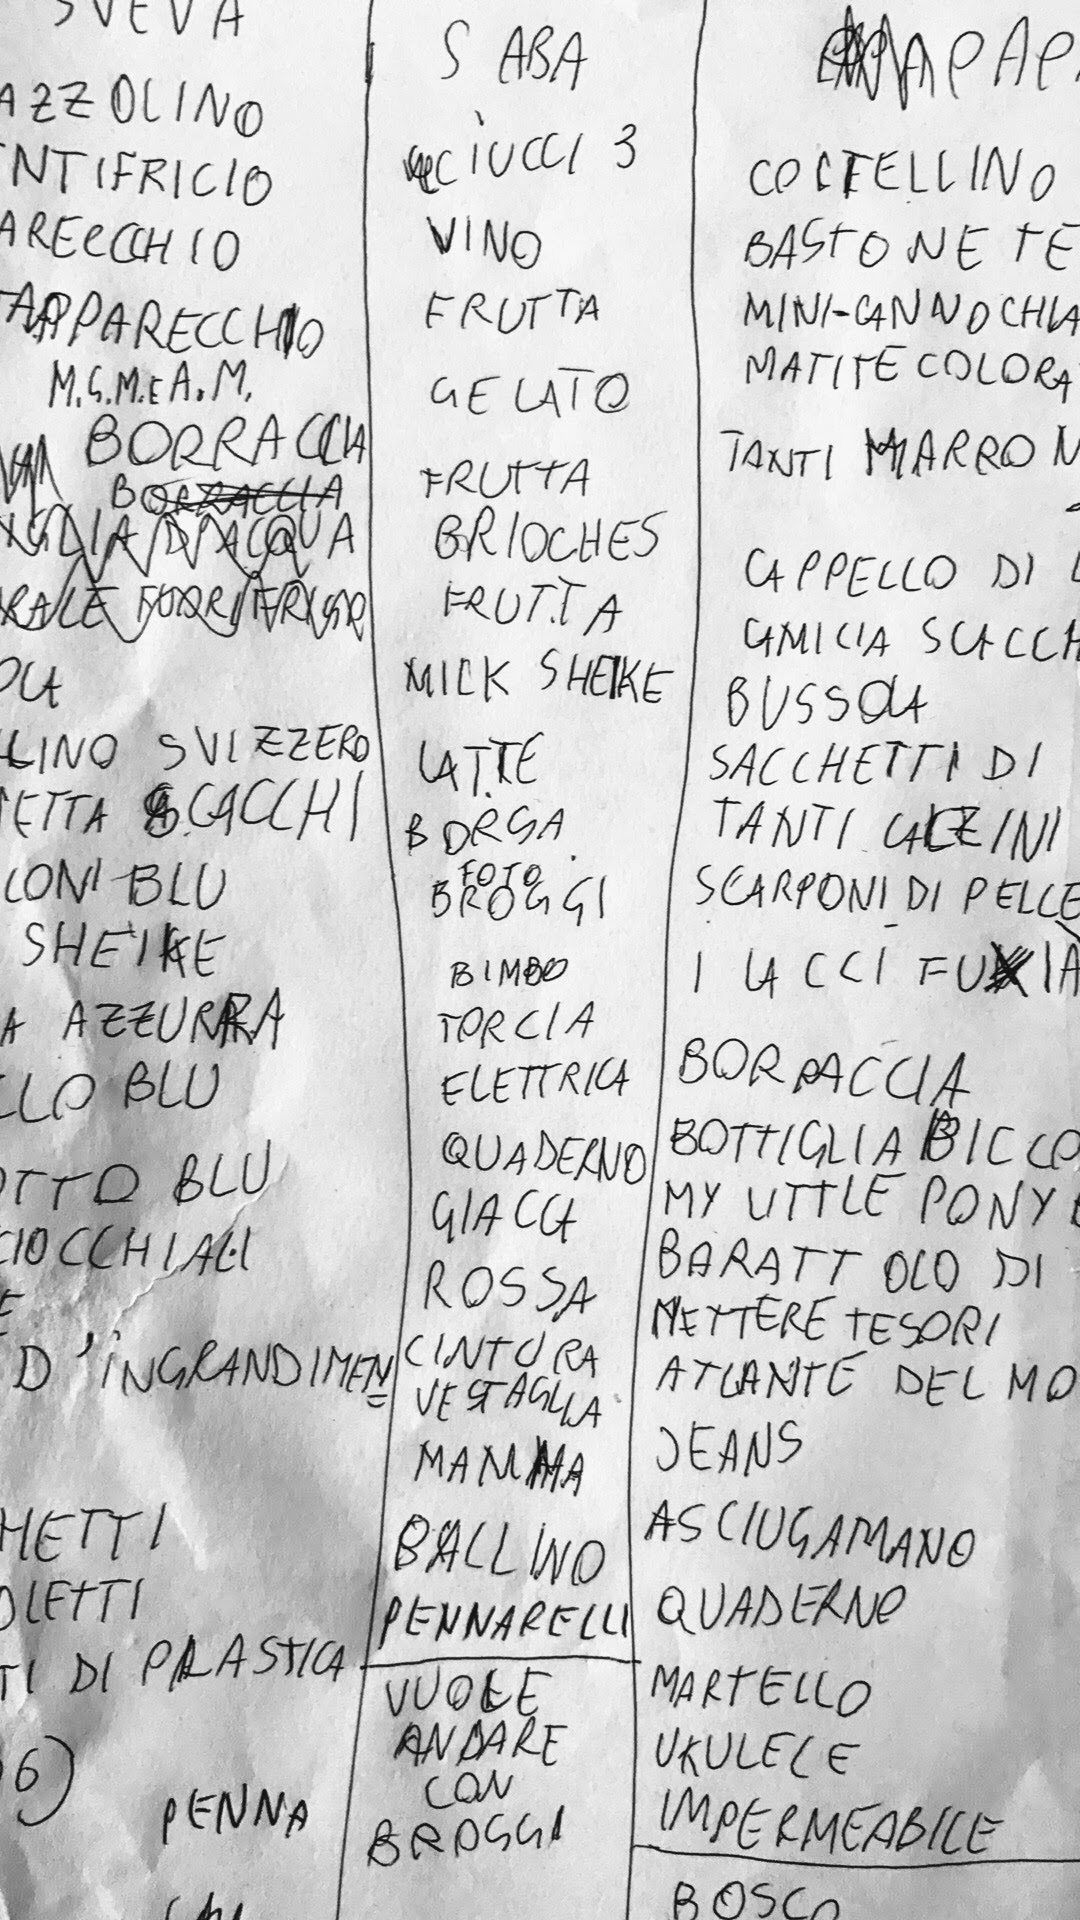 SVEVA
AZZOLINO
NTIFRICIO
ARECCHIO
APPARECCHIO
M.G.M.E A.M.
BORRACCIA
BORRACCIA
D'ACQUA
OLA
LINO SVIZZERO
ETTA SCACCHI
LONI BLU
SHEIKE
A AZZURRA
LLO BLU
OTTO BLU
CIOCCHIALI
E
D'INGRANDIMEN
HETTI
OLETTI
TI DI PLASTICA
6)
PENNA
SABA
CIUCCI 3
VINO
FRUTTA
GELATO
FRUTTA
BRIOCHES
FRUTTA
MILK SHEIKE
LATTE
BORSA
FOTO
BROGGI
BIMBO
TORCIA
ELETTRICA
QUADERNO
GIACCA
ROSSA
CINTURA
VESTAGLIA
MAMMA
BALLINO
PENNARELLI
VUOLE
ANDARE
CON
BROGGI
PAPA
COLTELLINO
BASTONE TE
MINI-CANNOCHIA
MATITE COLORA
TANTI MARRON
CAPPELLO DI L
CAMICIA SCACCH
BUSSOLA
SACCHETTI DI
TANTI CALZINI
SCARPONI DI PELLE
I LACCI FUXIA
BORRACCIA
BOTTIGLIA BICCO
MY LITTLE PONY
BARATTOLO DI
METTERE TESORI
ATLANTE DEL MO
JEANS
ASCIUGAMANO
QUADERNO
MARTELLO
UKULELE
IMPERMEABILE
BOSCO